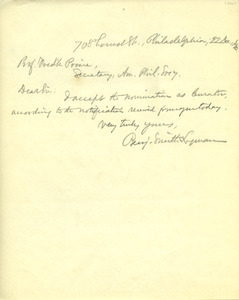 708 Locust St., Philadelphia, 22 Dec.
Prof.
Secretary, Am. Phil. Socy.
Dear Sir:
I accept the nomination as Curator,
according to the notification received from you today.
Very truly yours,
Benj. Smith Lyman